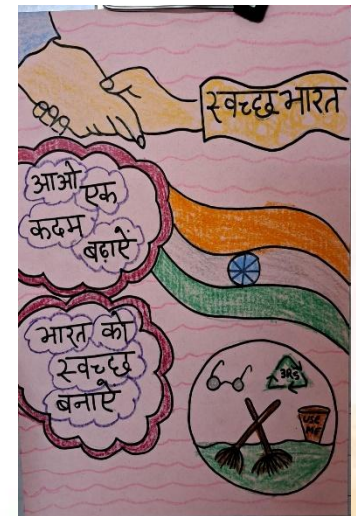 स्वच्छ भारत
आओ एक
कदम
बढ़ाऐं
भारत को
स्वच्छ
बनाऐ
3RS
USE
ME